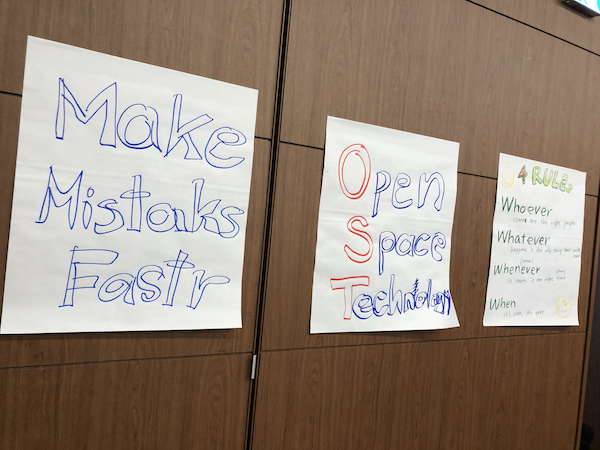 Make
Mistaks
Fastr
Open
Space
Technology
4 RULEs
Whoever
comes are the right people
Whatever
happens is the only thing that could
have
Whenever
it starts is the right time
When
it's over, it's over